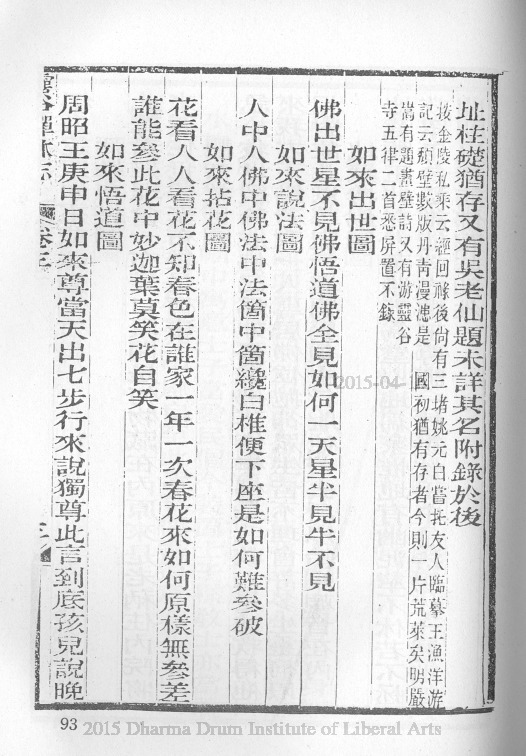 址柱礎猶存又有吳老仙題未詳其名附錄於後
按金陵私乘云經回祿後尙有三堵姚元白嘗托友人臨摹王漁洋游
記云頹壁數版丹青漫漶是 國初猶有存者今則一片荒萊矣明嚴
嵩有題畫壁詩又有游靈谷
寺五律二首悉屏置不錄
如來出世圖
佛出世星不見佛悟道佛全見如何一天星半見半不見
如來說法圖
人中人佛中佛法中法箇中箇纔白椎便下座是如何難參破
如來拈花圖
花看人人看花不知春色在誰家一年一次春花來如何原樣無參差
誰能參此花中妙迦葉莫笑花自笑
如來悟道圖
周昭王庚申日如來尊當天出七步行來說獨尊此言到底孩兒說晚
靈谷禪林志 卷三
2015-04-1
93
2015 Dharma Drum Institute of Liberal Arts